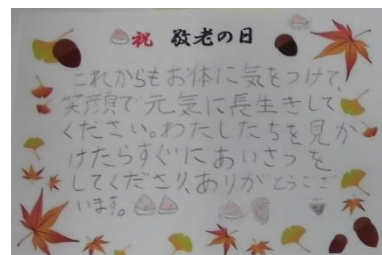 祝 敬老の日
これからもお体に気をつけて、
笑顔で元気に長生きして
ください。わたしたちを見か
けたらすぐにあいさつを
してくださり、ありがとうござ
います。